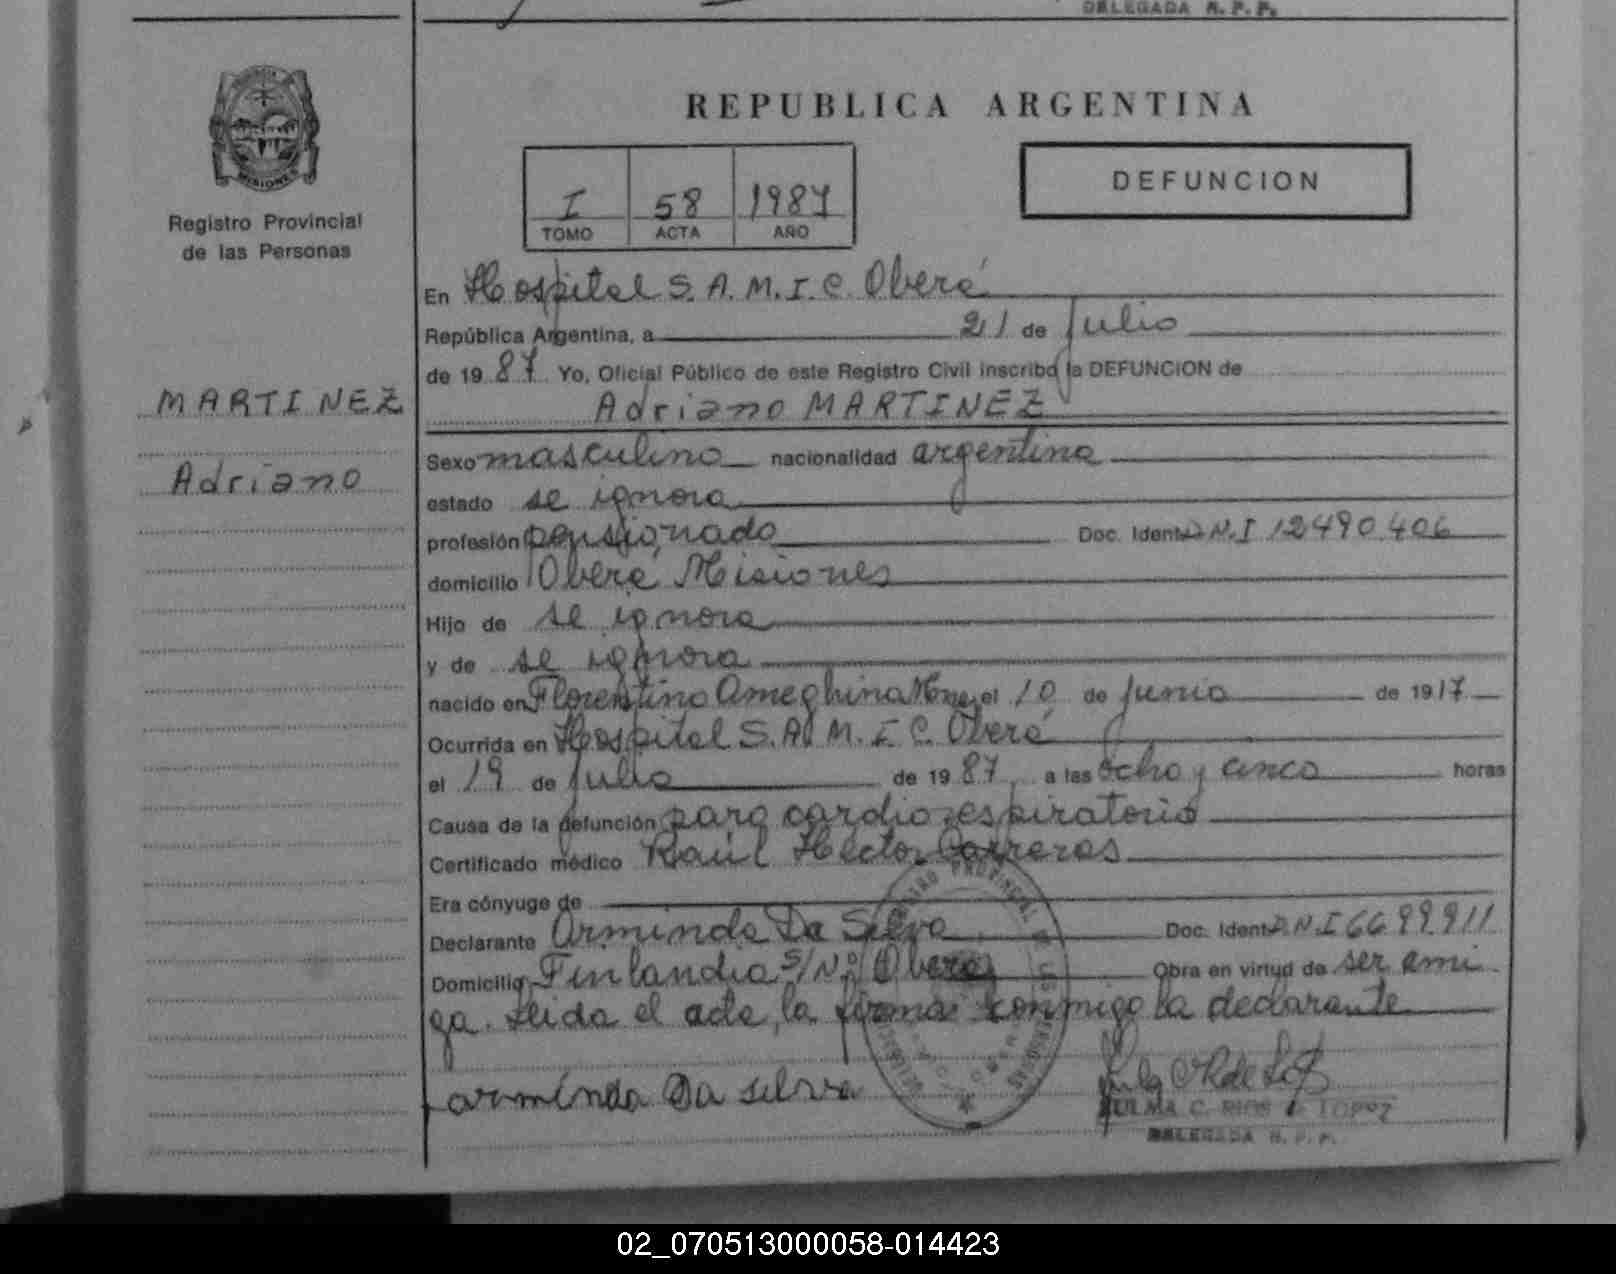 DELEGADA R. P. P.
MISIONES
Registro Provincial
de las Personas
MARTINEZ
Adriano
REPUBLICA ARGENTINA
I 58 1987
TOMO ACTA AÑO
DEFUNCION
En Hospital S. A. M. I. C. Oberá
República Argentina, a 21 de julio
de 1987 Yo, Oficial Público de este Registro Civil inscribo la DEFUNCION de
Adriano MARTINEZ
Sexo masculino nacionalidad argentina
estado se ignora
profesión pensionado Doc. Ident. D.N.I 12490406
domicilio Oberá Misiones
Hijo de se ignora
y de se ignora
nacido en Florentino Ameghino Mnes el 10 de junio de 1917
Ocurrida en Hospital S. A. M. I. C. Oberá
el 19 de julio de 1987 a las ocho y cinco horas
Causa de la defunción paro cardio respiratorio
Certificado médico Raúl Héctor Carreras
Era cónyuge de
Declarante Arminda Da Silva Doc. Ident. D.N.I 6699911
Domicilio Finlandia S/Nº Oberá Obra en virtud de ser ami
ga. Leida el acta, la firma conmigo la declarante
arminda Da silva
ZULMA C. RIOS de LOPEZ
DELEGADA R. P. P.
02_070513000058-014423